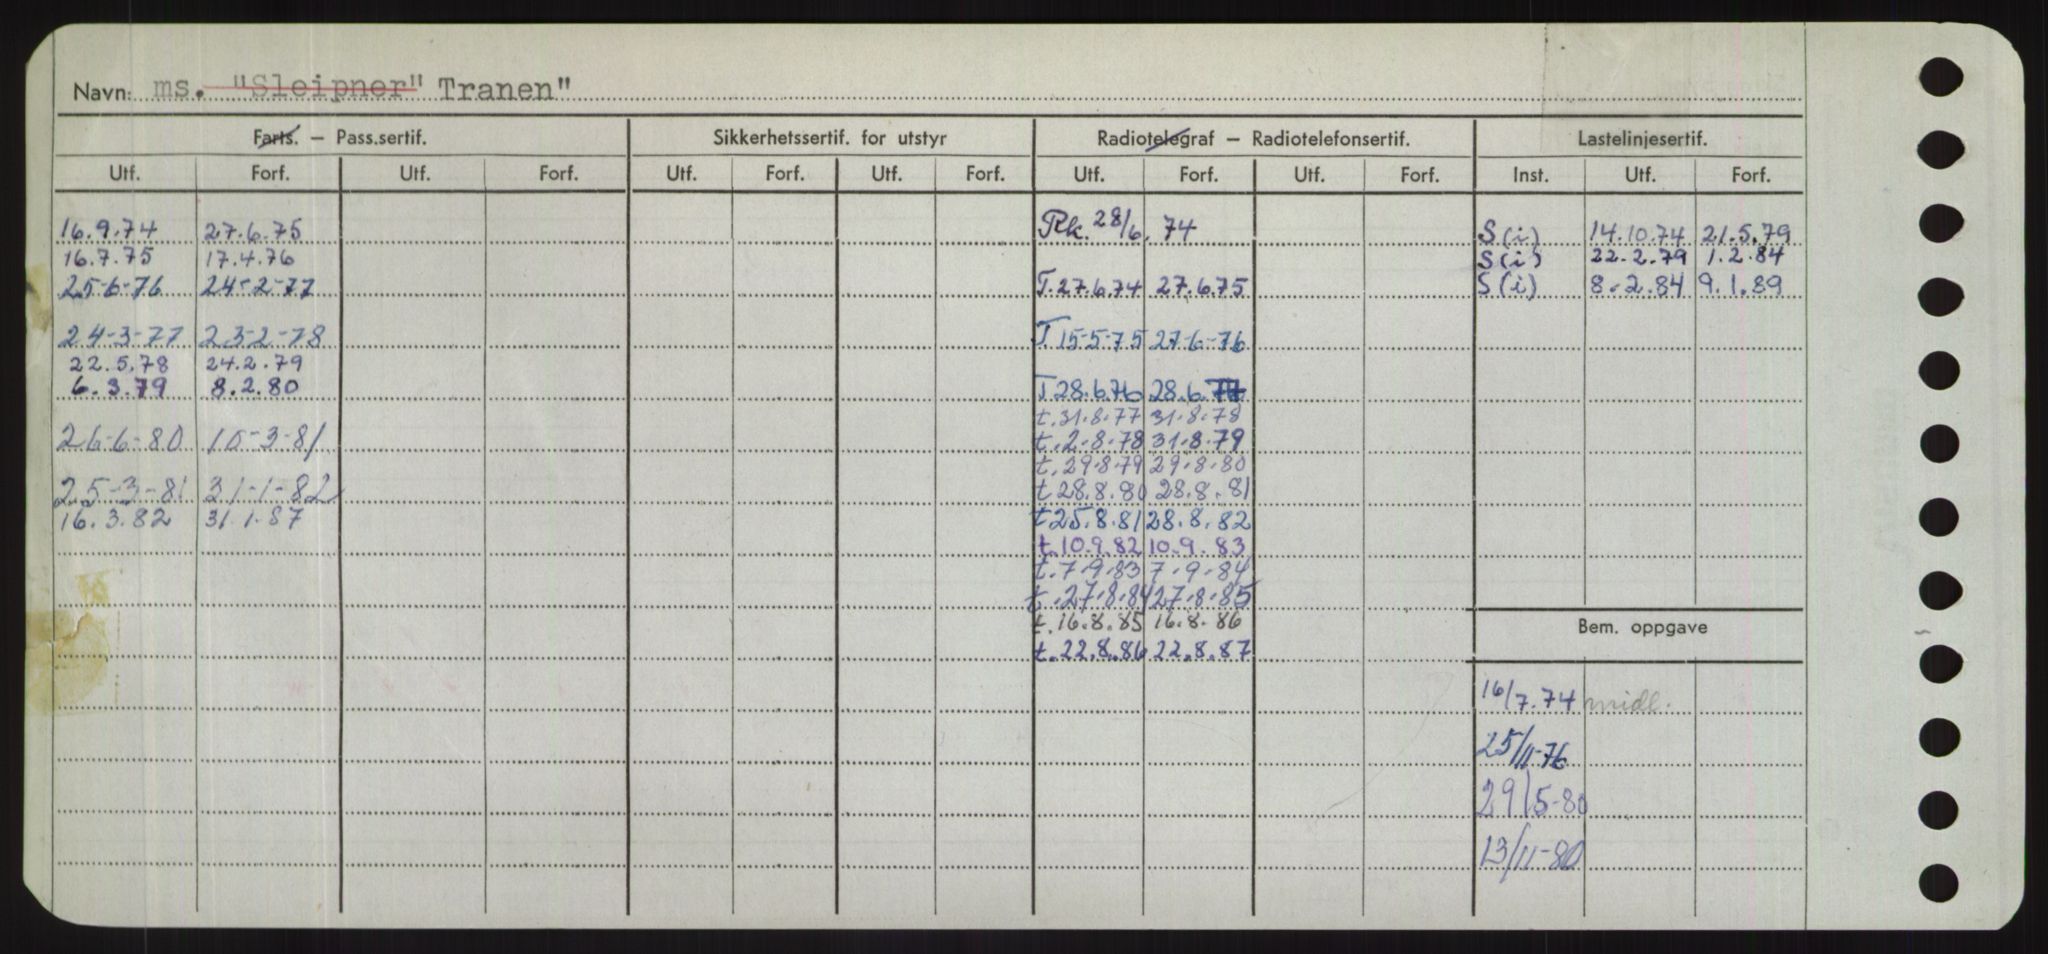 Navn: ms. "Sleipner" Tranen"
Farts. – Pass.sertif. Sikkerhetssertif. for utstyr Radiotelegraf – Radiotelefonsertif. Lastelinjesertif.
Utf. Forf. Utf. Forf. Utf. Forf. Utf. Forf. Utf. Forf. Utf. Forf. Inst. Utf. Forf.
16.9.74 27.6.75 Rk. 28/6. 74 S(i) 14.10.74 21.5.79
16.7.75 17.4.76 S(i) 22.2.79 1.2.84
25-6-76 24-2-77 T. 27.6.74 27.6.75 S(i) 8.2.84 9.1.89
24-3-77 23-2-78 T 15-5-75 27-6-76
22.5.78 24.2.79
6.3.79 8.2.80 T 28.6.76 28.6.77
t. 31.8.77 31.8.78
26-6-80 10-3-81 t. 2.8.78 31.8.79
t. 29.8.79 29.8.80
25-3-81 31-1-82 t 28.8.80 28.8.81
16.3.82 31.1.87 t. 25.8.81 28.8.82
t. 10.9.82 10.9.83
t. 7.9.83 7.9.84
t. 27.8.84 27.8.85
t. 16.8.85 16.8.86 Bem. oppgave
t. 22.8.86 22.8.87
16/7.74 midl.
25/11-76
29/5-80
13/11-80